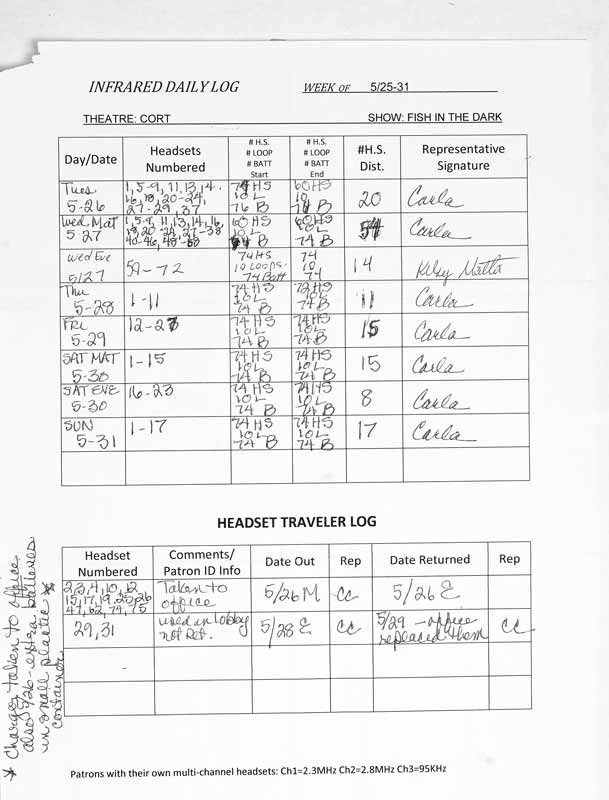 INFRARED DAILY LOG WEEK OF 5/25-31
THEATRE: CORT SHOW: FISH IN THE DARK
Day/Date Headsets Numbered # H.S. # LOOP # BATT Start # H.S. # LOOP # BATT End #H.S. Dist. Representative Signature
Tues 5-26 1, 5-9, 11, 13, 14. 16, 18, 20-24, 27-29, 37 HS 10L 76 B 60HS 10 B 20 Carla
Wed. Mat 5 27 1, 5-9, 11, 13, 14, 16, 18, 20-24, 27-38 60 HS 10 B 60HS 10L B Carla
Wed Eve 5/27 59-72 74HS 10 Loops. 74 Batt 74 10 74 14
Thu 5-28 1-11 74 HS 10L 74 B 72HS 10L 74 B 11 Carla
FRI 5-29 12-27 74 HS 10L 74 B 74HS 10L 74 B 15 Carla
SAT MAT 5-30 1-15 74 HS 10L 74 B 74HS 10L 74 B 15 Carla
SAT EVE 5-30 16-23 74 HS 10L 74 B 74HS 10L 74 B 8 Carla
SUN 5-31 1-17 74 HS 10L 74 B 74HS 10L 74 B 17 Carla
HEADSET TRAVELER LOG
Headset Numbered Comments/ Patron ID Info Date Out Rep Date Returned Rep
2, 3, 4, 10, 12 15, 17, 19, 25, 26 47, 62, 74, 75 Taken to office 5/26 M CC 5/26 E
29, 31 used in lobby not Ret. 5/28 E CC 5/29 - office replaced them CC
* Charger taken to office
also 5/26 - extra batteries *
in small plastic
container
Patrons with their own multi-channel headsets: Ch1=2.3MHz Ch2=2.8MHz Ch3=95KHz